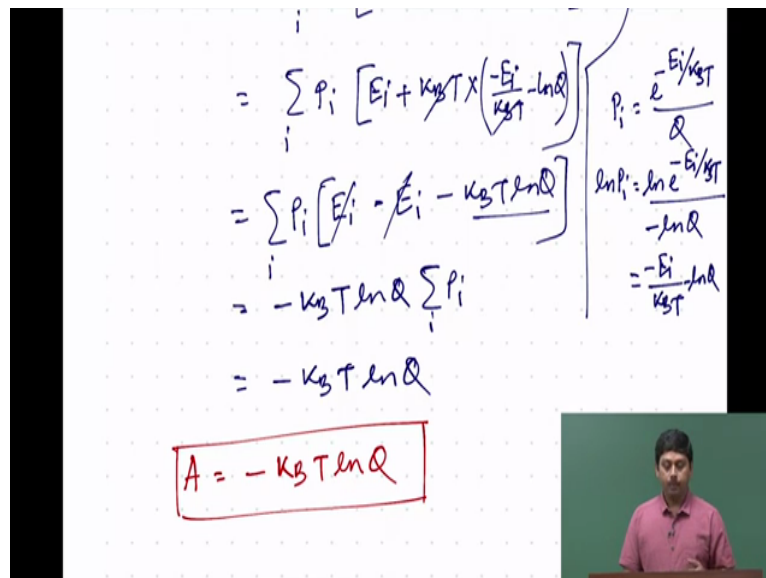 i
= Σ Pi [Ei + KBT × (-Ei/KBT - lnQ)]
i
= Σ Pi [Ei - Ei - KBT lnQ]
i
= - KBT lnQ Σ Pi
i
= - KBT lnQ
A = - KBT lnQ
Pi = e^-Ei/KBT / Q
lnPi = ln e^-Ei/KBT
- lnQ
= -Ei/KBT - lnQ